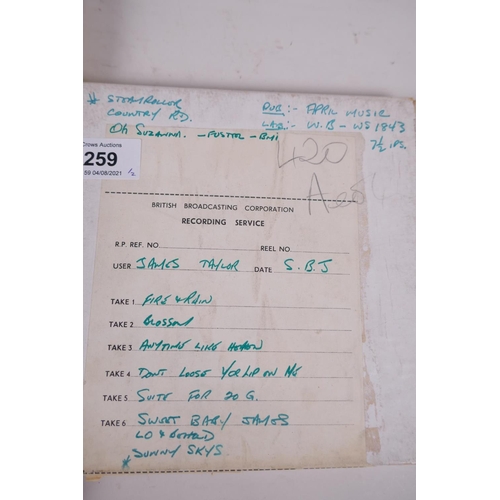 * STEAMROLLER
COUNTRY RD.
Oh SUZANNA. - FOSTER - BMI
PUB :- APRIL MUSIC
LAB :- W.B - WS 1843
7½ IPS.
Crows Auctions
259
59 04/08/2021 ½
420
BRITISH BROADCASTING CORPORATION
RECORDING SERVICE
R.P. REF. NO.
REEL NO.
USER JAMES TAYLOR DATE S.B.J
TAKE 1 FIRE & RAIN
TAKE 2 BLOSSOM
TAKE 3 ANYTIME LIKE HEAVEN
TAKE 4 DONT LOOSE YOR LIP ON ME
TAKE 5 SUITE FOR 20 G.
TAKE 6 SWEET BABY JAMES
LO & BEHOLD
* SUNNY SKYS.